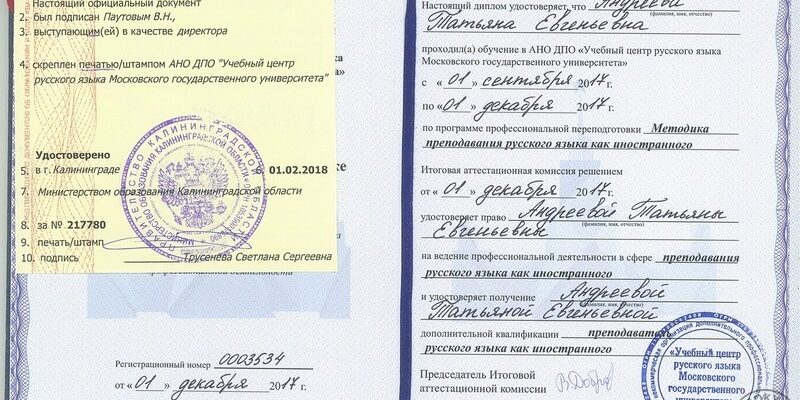 Настоящий официальный документ
2. был подписан Паутовым В.Н.,
3. выступающим(ей) в качестве директора
4. скреплен печатью/штампом АНО ДПО "Учебный центр
русского языка Московского государственного университета"
Удостоверено
5. в г. Калининграде 6. 01.02.2018
7. Министерством образования Калининградской области
8. за № 217780
9. печать/штамп
10. подпись Трусенёва Светлана Сергеевна
ПРАВИТЕЛЬСТВО КАЛИНИНГРАДСКОЙ ОБЛАСТИ
Регистрационный номер 0003534
от «01» декабря 2017 г.
Настоящий диплом удостоверяет, что Андреева
(фамилия, имя, отчество)
Татьяна Евгеньевна
проходил(а) обучение в АНО ДПО «Учебный центр русского языка
Московского государственного университета»
с «01» сентября 2017 г.
по «01» декабря 2017 г.
по программе профессиональной переподготовки Методика
преподавания русского языка как иностранного
Итоговая аттестационная комиссия решением
от «01» декабря 2017 г.
удостоверяет право Андреевой Татьяны
(фамилия, имя, отчество)
Евгеньевны
на ведение профессиональной деятельности в сфере преподавания
русского языка как иностранного
и удостоверяет получение Андреевой
(фамилия, имя, отчество)
Татьяной Евгеньевной
дополнительной квалификации преподаватель
русского языка как иностранного
Председатель Итоговой
аттестационной комиссии
«Учебный центр
русского языка
Московского
государственного
университета»